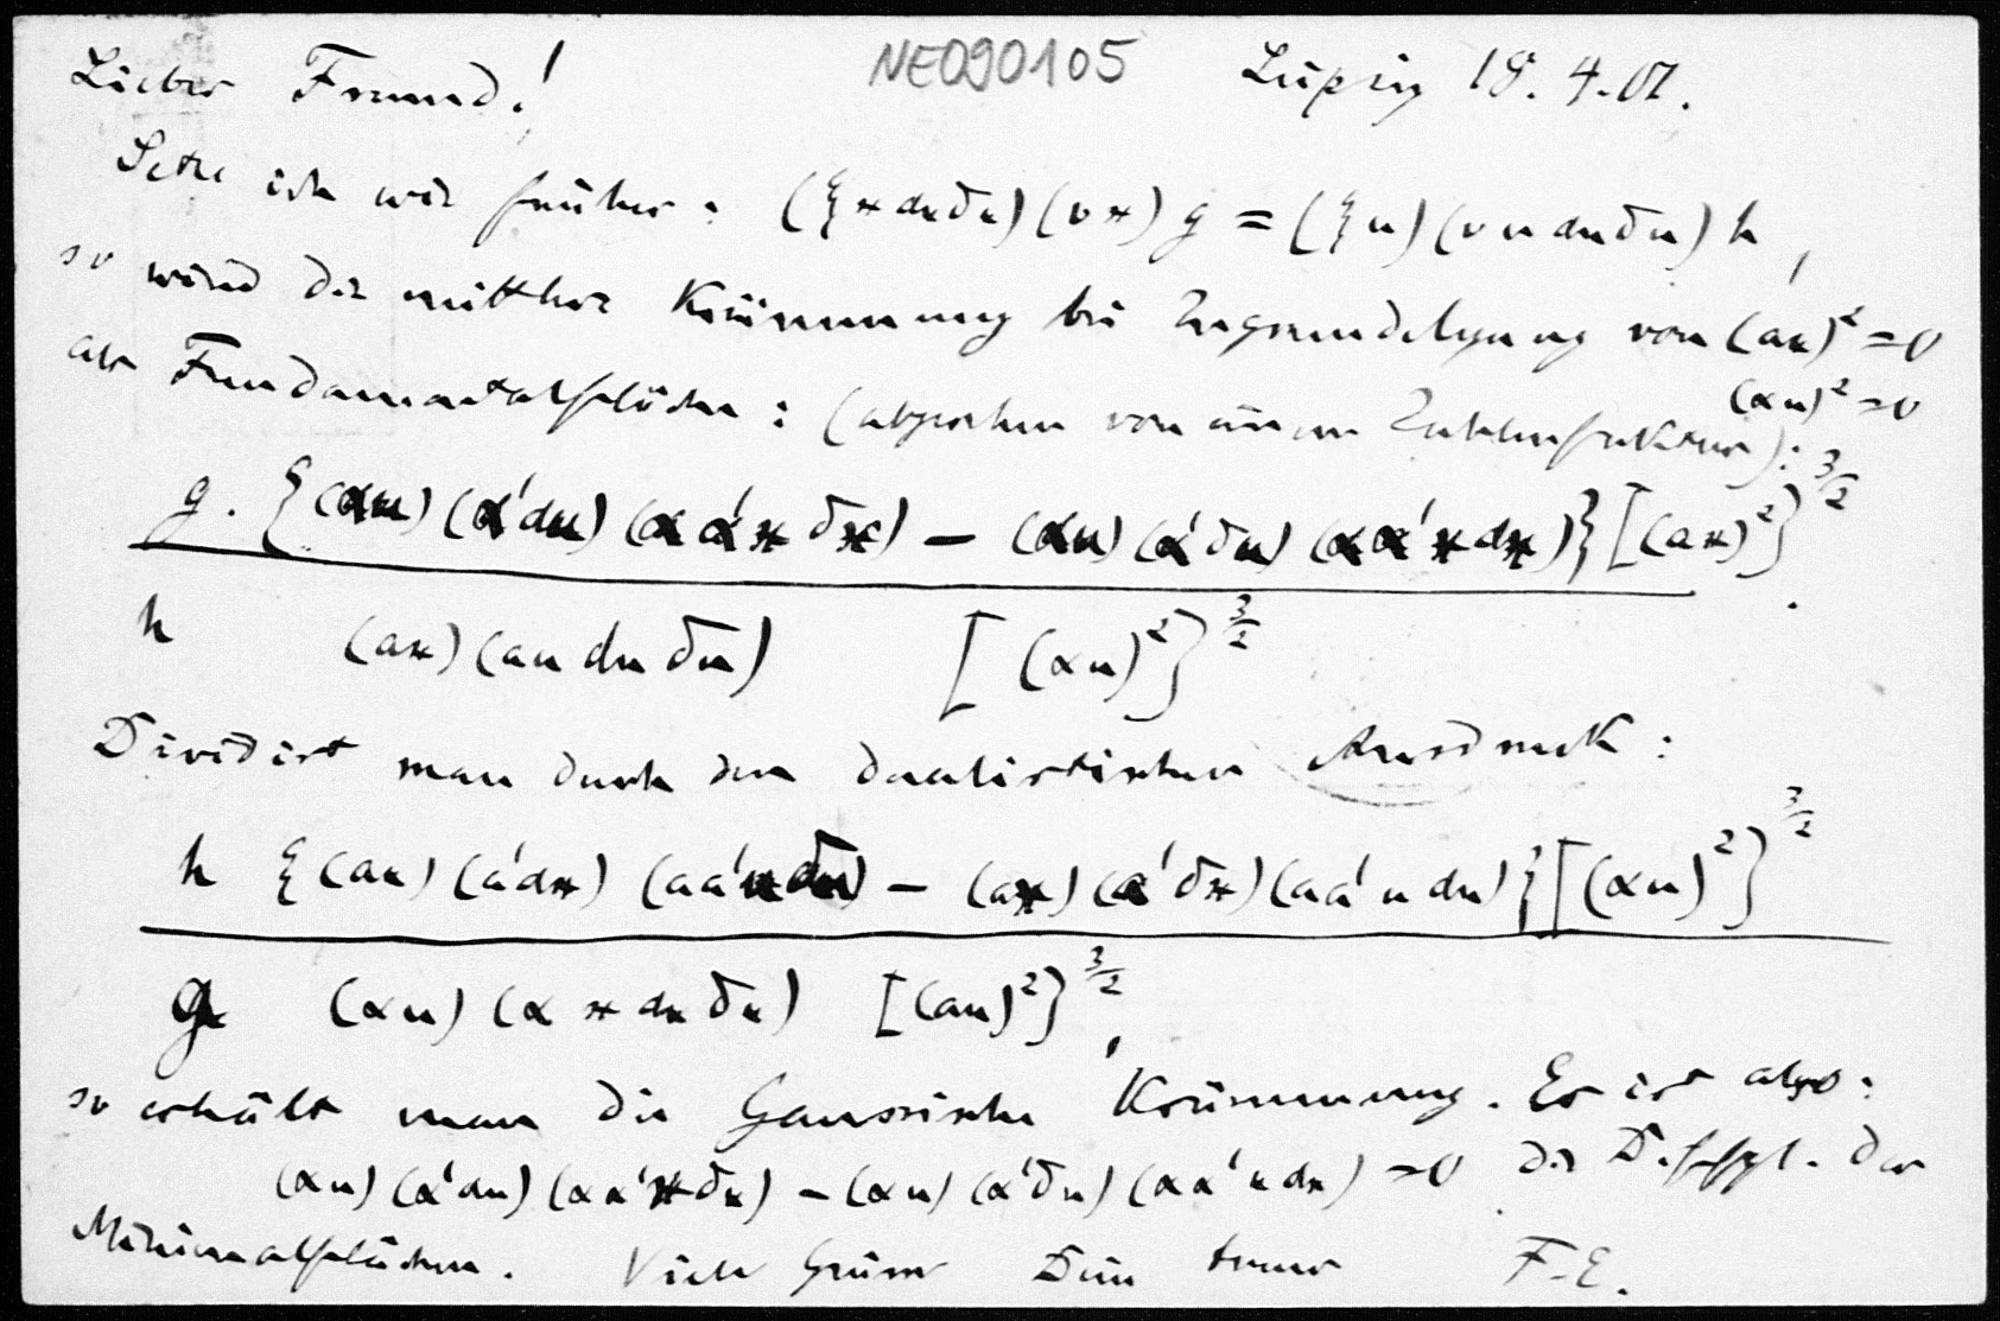 Lieber Freund! NE090105 Leipzig 18. 4. 01.
Setze ich wie früher: (ξ x dx δx) (v x) g = (ξ u) (v u du δu) h,
so wird die mittlere Krümmung bei Zugrundelegung von (ax)² = 0
(αu)² = 0
als Fundamentalfläche: (abgesehen von einem Zahlenfaktor):
g. {(αu) (α'du) (α α' x δx) – (αu) (α' δu) (α α' x dx)} [(ax)²]^{3/2}
h (ax) (a u du δu) [(αu)²]^{3/2}.
Dividirt man durch den dualistischen Ausdruck:
h {(ax) (a'dx) (aa'u δu) – (ax) (a' δx) (aa' u du)} [(αu)²]^{3/2}
g (αu) (α x dx δx) [(ax)²]^{3/2},
so erhält man die Gaussische Krümmung. Es ist also:
(αu) (α'du) (αα' x δx) – (αu) (α'δu) (αα' x dx) = 0 die D. glgl. der
Minimalflächen. Viele Grüsse Dein treuer F. E.